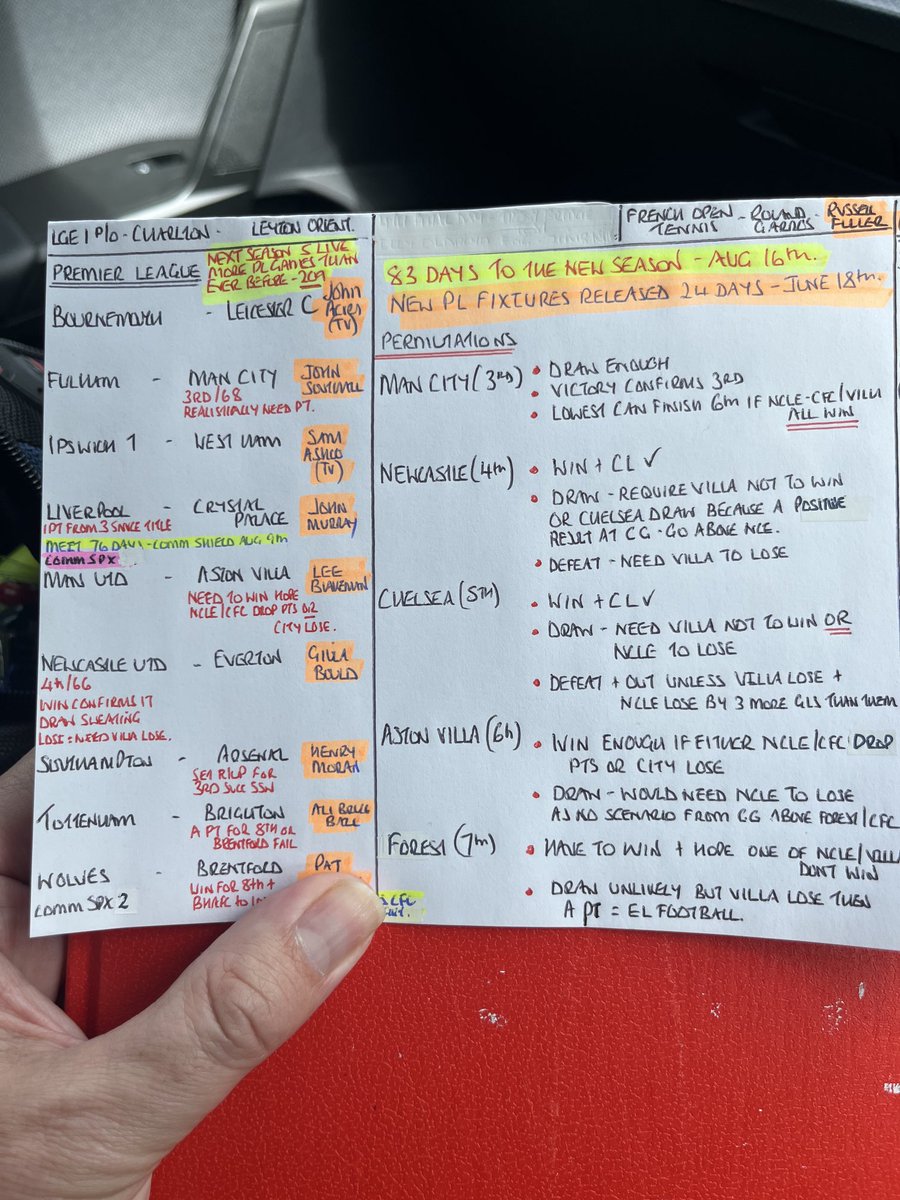 LGE 1 P/O - CHARLTON - LEYTON ORIENT.
FRENCH OPEN - ROLAND - RUSSELL
TENNIS GARROS FULLER
PREMIER LEAGUE
NEXT SEASON 5 LIVE
MORE PL GAMES THAN
EVER BEFORE - 209
BOURNEMOUTH - LEICESTER C
John
Acres
(TV)
FULHAM - MAN CITY
3RD/68
REALISTICALLY NEED PT.
JOHN
SOUTHALL
IPSWICH T - WEST HAM
SAM
(TV)
LIVERPOOL - CRYSTAL
PALACE
1PT FROM 3 SINCE TITLE
JOHN
MURRAY
MEET 76 DAYS - COMM SHIELD AUG 9TH
COMM SPX
MAN UTD - ASTON VILLA
NEED TO WIN HOPE
NCLE/CFC DROP PTS OR
CITY LOSE.
LEE
BLAKEMAN
NEWCASTLE UTD - EVERTON
4th/66
WIN CONFIRMS IT
DRAW
LOSE = NEED VILLA LOSE.
BOULD
SOUTHAMPTON - ARSENAL
SET R/UP FOR
3RD SUCC SSN
HENRY
MORAN
TOTTENHAM - BRIGHTON
A PT FOR 8TH OR
BRENTFORD FAIL
ALI BRUCE
BALL
WOLVES - BRENTFORD
WIN FOR 8TH +
COMM SPX 2
PAT
83 DAYS TO THE NEW SEASON - AUG 16TH.
NEW PL FIXTURES RELEASED 24 DAYS - JUNE 18TH.
PERMUTATIONS
MAN CITY (3RD) • DRAW ENOUGH
• VICTORY CONFIRMS 3RD
• LOWEST CAN FINISH 6TH IF NCLE-CFC/VILLA
ALL WIN
NEWCASTLE (4TH) • WIN + CL ✓
• DRAW - REQUIRE VILLA NOT TO WIN
OR CHELSEA DRAW BECAUSE A POSITIVE
RESULT AT CG - GO ABOVE NCE.
• DEFEAT - NEED VILLA TO LOSE
CHELSEA (5TH) • WIN + CL ✓
• DRAW - NEED VILLA NOT TO WIN OR
NCLE TO LOSE
• DEFEAT + OUT UNLESS VILLA LOSE +
NCLE LOSE BY 3 MORE GLS THAN THEM
ASTON VILLA (6th) • WIN ENOUGH IF EITHER NCLE/CFC DROP
PTS OR CITY LOSE
• DRAW - WOULD NEED NCLE TO LOSE
AS NO SCENARIO FROM CG ABOVE FOREST/CFC
FOREST (7TH) • HAVE TO WIN + HOPE ONE OF NCLE/VILLA
DON'T WIN
• DRAW UNLIKELY BUT VILLA LOSE THEN
A PT = EL FOOTBALL.
CFC